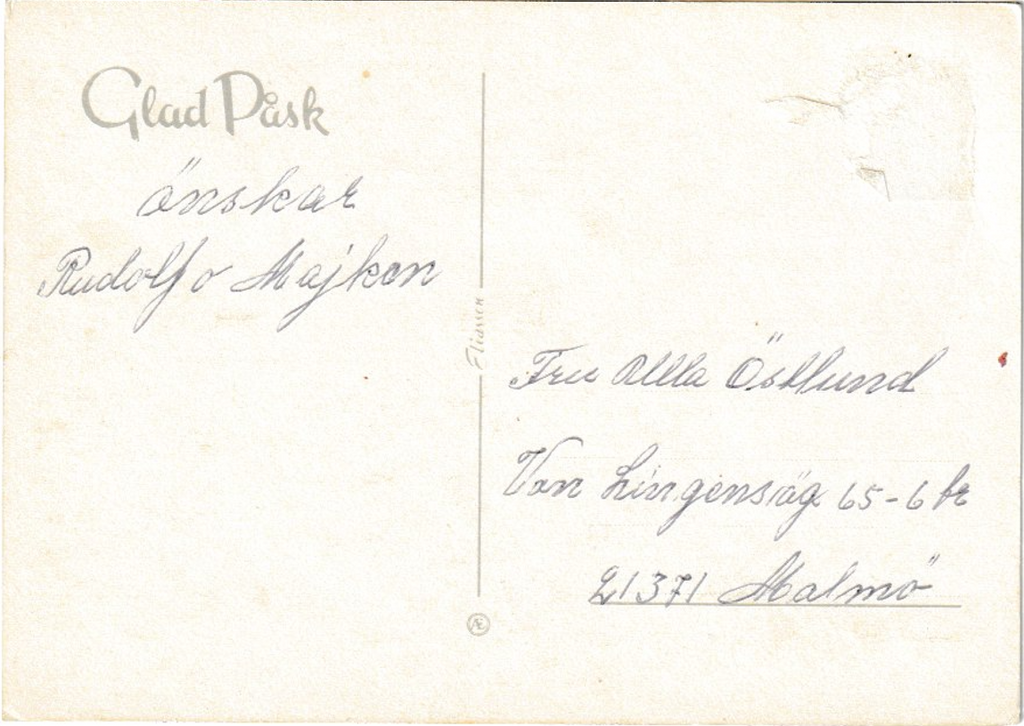 Glad Påsk
önskar
Rudolf o Majken
Eliassen
Fru Ulla Östlund
Von Lingensväg 65-6 tr
21371 Malmö
Æ